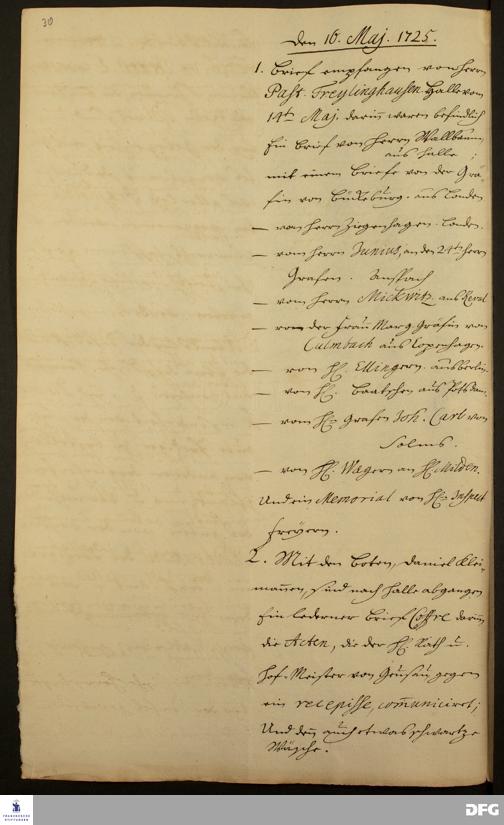 30
Den 16. Maj. 1725.
1. Brief empfangen von Herrn
Past. Freylinghausen. Halle vom
14ten Maj. darin̅ waren befindlich
Ein Brief von Herrn Wallbaum,
aus Halle;
mit einem Briefe von der Grä-
fin von Bückeburg. aus Londen
— von Herrn Ziegenhagen. Londen.
— vom Herrn Junius, an den 24ten Herrn
Grafen. Anspach
— vom Herrn Mickwitz. aus Reval
— von der Frau Marg. Gräfin von
Culmbach aus Copenhagen.
— von H. Ellingern. aus Berlin.
— von H. Baatzhen aus Potsdam.
— vom H. Grafen Joh. Carl von
Solms.
— von H. Wagern an H. Milden.
Und ein Memorial von H. Inspect
Freyern.
2. Mit den Boten, Daniel Klei-
man̅en, sind nach Halle abgangen
Ein lederner Brief Coffre darin̅
die Acten, die der H. Rath u.
Hof-Meister von Geusau gegen
ein recepisse, com̅uniciret;
Und den̅ auch etwas schwartze
Wäsche.
FRANCKESCHE
STIFTUNGEN
DFG